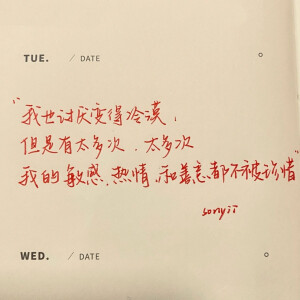 TUE. / DATE
“我也讨厌变得冷漠，
但是有太多次，太多次
我的敏感、热情、和善意都不被珍惜”
sonyii
WED. / DATE